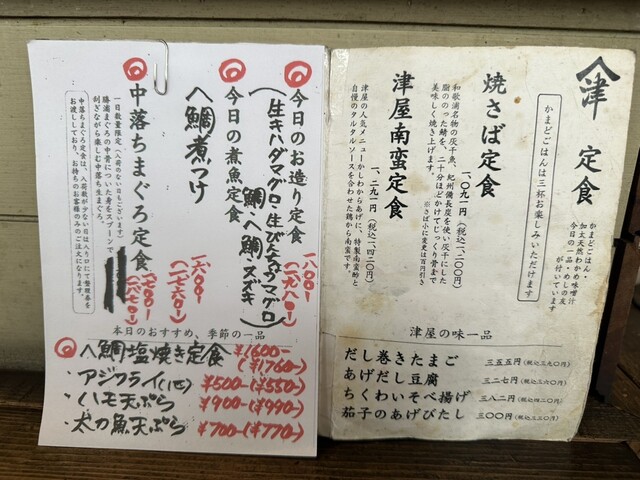 津 定食
かまどごはん・
加太天然わかめ味噌汁
今日の一品・めしの友
が付いています
かまどごはんは三杯お楽しみいただけます
焼さば定食
一、〇九一円(税込一、二〇〇円)
和歌浦名物の灰干魚、
脂ののった鯖を、二十分ほどかけてじっくり骨まで
美味しく焼き上げます。
※さば小に変更は百円引き
津屋南蛮定食
一、二九一円(税込一、四二〇円)
津屋の人気メニューかしわからあげに、特製南蛮酢と
自慢のタルタルソースを合わせた鶏から南蛮です。
津屋の味一品
だし巻きたまご 三五五円(税込三九〇円)
あげだし豆腐 三二七円(税込三六〇円)
ちくわいそべ揚げ 三八二円(税込四二〇円)
茄子のあげびたし 三〇〇円(税込三三〇円)
今日のお造り定食
(生キハダマグロ・生びん長マグロ
鯛・へ鯛・スズキ)
一八〇〇-
(一九八〇-)
今日の煮魚定食
へ鯛煮つけ
一六〇〇-
(一七六〇-)
中落ちまぐろ定食
一七〇〇-
一日数量限定(入荷のない日もございます)
勝浦まぐろの中骨についた身をスプーンで
削ぎながら楽しむ中落ち生まぐろ。
中落ちまぐろ定食は、入荷数が少ない日は入り口にて整理券を
お渡ししており、お持ちのお客様のみのご注文になります。
本日のおすすめ、季節の一品
へ鯛塩焼き定食 ¥1600-
(¥1760-)
・アジフライ(1匹) ¥500-(¥550-)
・ハモ天ぷら ¥900-(¥990-)
・太刀魚天ぷら ¥700-(¥770-)